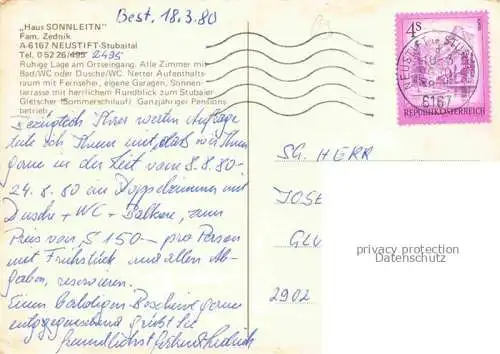 Best. 18.3.80
„Haus SONNLEITN"
Fam. Zednik
A-6167 NEUSTIFT-Stubaital
Tel. 0 52 26/495 2495
Ruhige Lage am Ortseingang. Alle Zimmer mit
Bad/WC oder Dusche/WC. Netter Aufenthalts-
raum mit Fernseher, eigene Garagen, Sonnen-
terrasse mit herrlichem Rundblick zum Stubaier
Gletscher (Sommerschilauf) Ganzjähriger Pensions
betrieb.
Bezüglich Ihrer werten Anfrage
teile ich Ihnen mit, dass wir Ihnen
gerne in der Zeit vom 8.8.80-
24.8.80 ein Doppelzimmer mit
Dusche + WC + Balkon, zum
Preis von S 150- pro Person
mit Frühstück und allen Ab-
gaben, reservieren.
Einen baldigen Bescheid gerne
entgegensehend grüßt Sie
freundlichst Zednik
4S
6167
REPUBLIK ÖSTERREICH
SG. HERR
JOSE
GLU
2902
privacy protection
Datenschutz